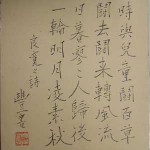 時與兒童鬪百草
鬪去鬪来轉風流
日暮寥々人歸後
一輪明月凌素秋
良寛之詩